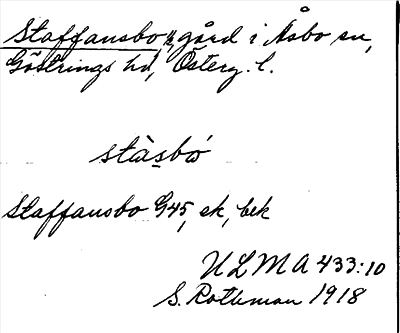 Staffansbo, gård i Åsbo sn,
Göstrings hd, Österg. l.
stàsbó
Staffansbo G45, ek, bek
ULMA 433:10
S. Rothman 1918